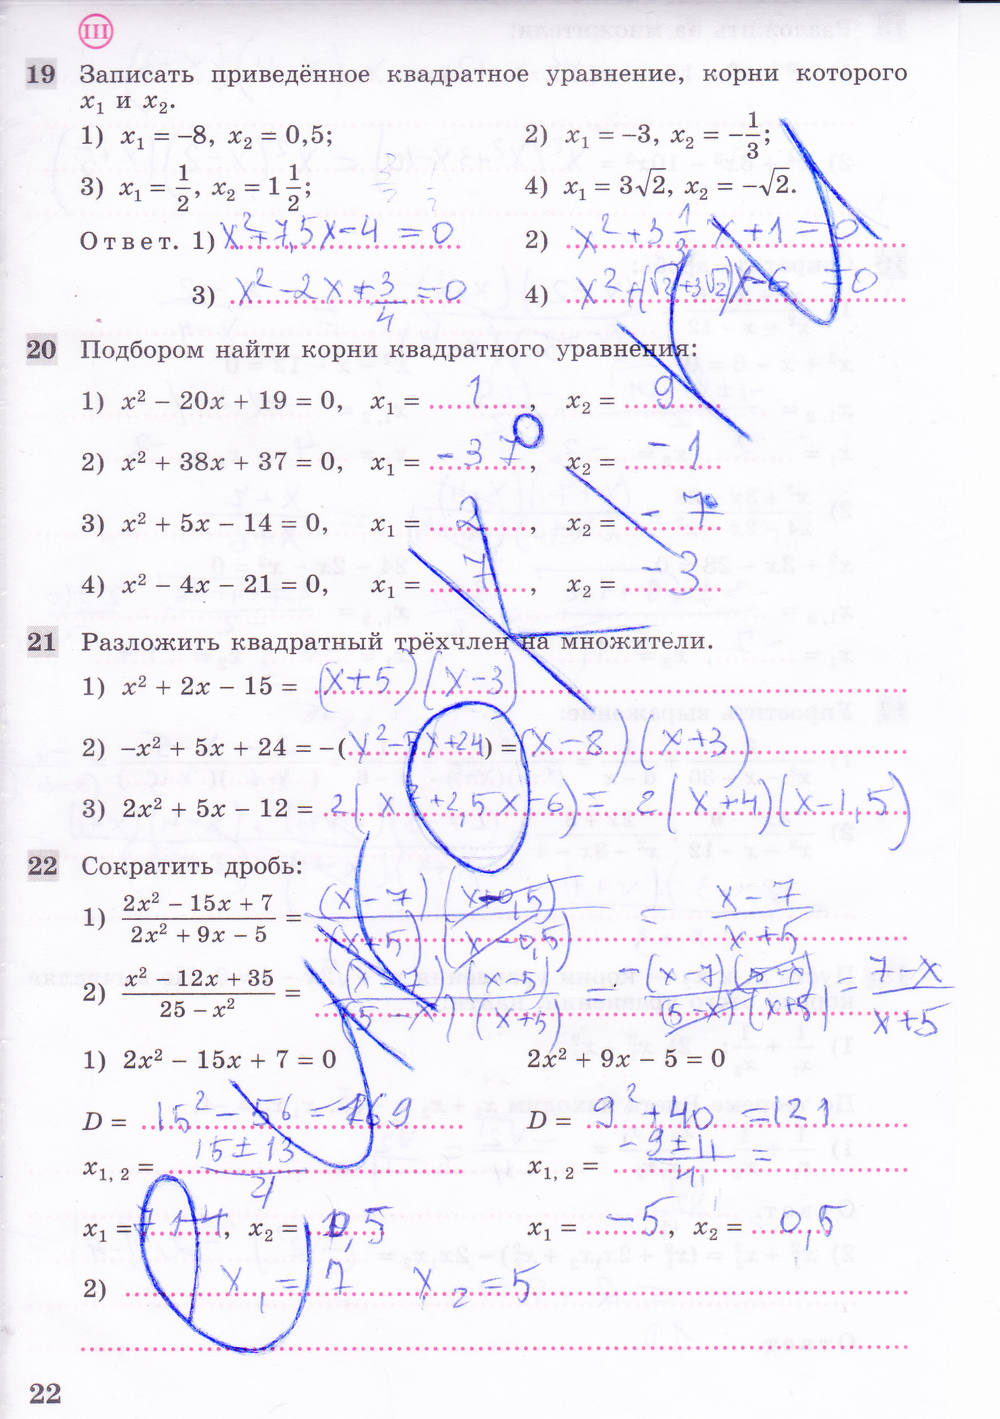 III
19 Записать приведённое квадратное уравнение, корни которого
x₁ и x₂.
1) x₁ = –8, x₂ = 0,5; 2) x₁ = –3, x₂ = –1/3;
3) x₁ = 1/2, x₂ = 1 1/2; 4) x₁ = 3√2, x₂ = –√2.
Ответ. 1) x² + 7,5x – 4 = 0 2) x² + 3 1/3 x + 1 = 0
3) x² – 2x + 3/4 = 0 4) x² + (√2 + 3√2)x – 6 = 0
20 Подбором найти корни квадратного уравнения:
1) x² – 20x + 19 = 0, x₁ = 1, x₂ = 9
2) x² + 38x + 37 = 0, x₁ = –37, x₂ = –1
3) x² + 5x – 14 = 0, x₁ = 2, x₂ = –7
4) x² – 4x – 21 = 0, x₁ = 7, x₂ = –3
21 Разложить квадратный трёхчлен на множители.
1) x² + 2x – 15 = (x+5)(x–3)
2) –x² + 5x + 24 = –(x² – 5x + 24) = (x–8)(x+3)
3) 2x² + 5x – 12 = 2(x² + 2,5x – 6) = 2(x+4)(x–1,5)
22 Сократить дробь:
1) (2x² – 15x + 7)/(2x² + 9x – 5) = (x–7)(x–0,5)/(x+5)(x–0,5) = (x–7)/(x+5)
2) (x² – 12x + 35)/(25 – x²) = (x–7)(x–5)/(5–x)(x+5) = (x–7)(5–x)/(5–x)(x+5) = (7–x)/(x+5)
1) 2x² – 15x + 7 = 0 2x² + 9x – 5 = 0
D = 15² – 56 = 169 D = 9² + 40 = 121
x₁,₂ = (15±13)/4 x₁,₂ = (–9±11)/4 =
x₁ = 7, x₂ = 0,5 x₁ = –5, x₂ = 0,5
2) x₁ = 7 x₂ = 5
22